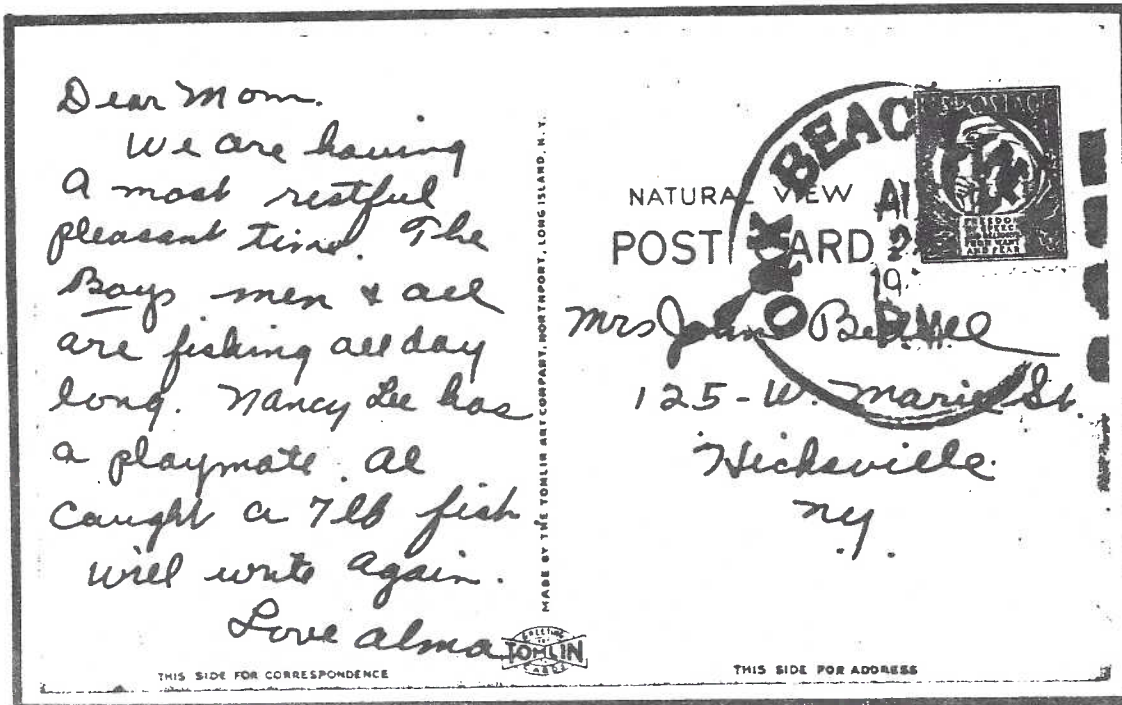 Dear Mom.
We are having
a most restful
pleasant time. The
Boys men & all
are fishing all day
long. Nancy Lee has
a playmate. Al
caught a 7 lb fish
will write again.
Love Alma
THIS SIDE FOR CORRESPONDENCE
MADE BY THE TOMLIN ART COMPANY, NORTHPORT, LONG ISLAND, N.Y.
GREETING
TOMLIN
CARDS
OAK BEACH
NATURAL VIEW
POST CARD
FREEDOM
OF SPEECH
AND RELIGION
FROM WANT
AND FEAR
Mrs John
125-W. Marie St.
Hicksville
NY.
THIS SIDE FOR ADDRESS